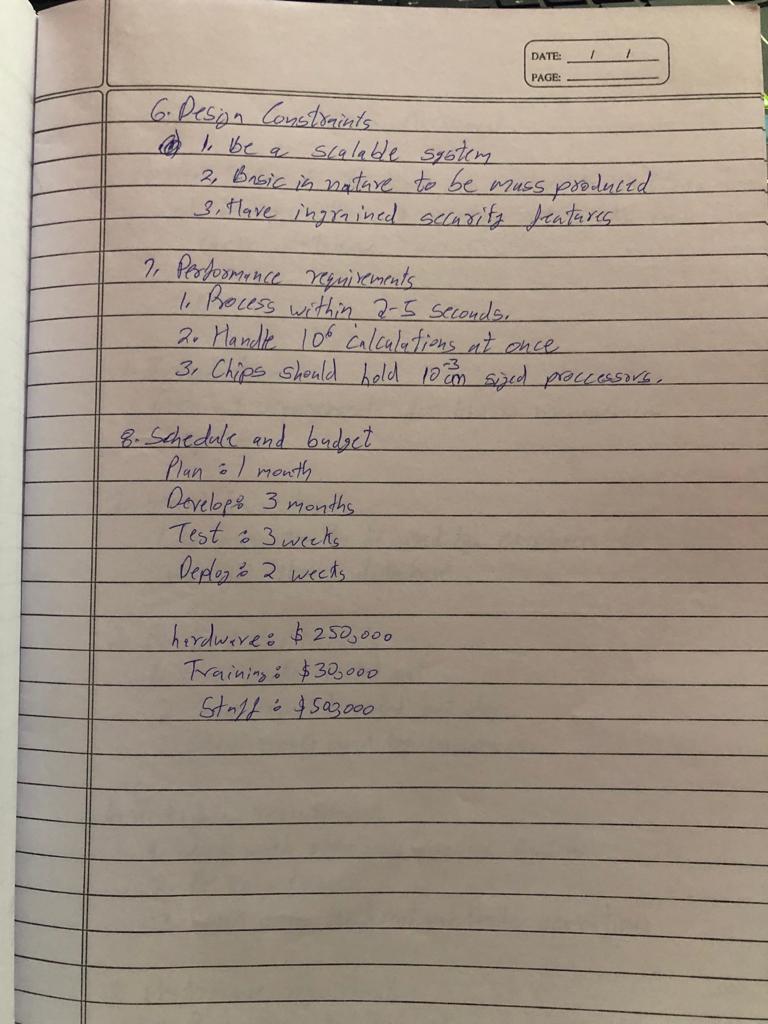 DATE: / /
PAGE:
6. Design Constraints
1. Be a scalable system
2. Basic in nature to be mass produced
3. Have ingrained security features
7. Performance requirements
1. Process within 2-5 seconds.
2. Handle 10⁶ calculations at once
3. Chips should hold 10⁻³cm sized proccessors.
8. Schedule and budget
Plan : 1 month
Develop: 3 months
Test : 3 weeks
Deploy : 2 weeks
hardware: $ 250,000
Training : $30,000
Staff :